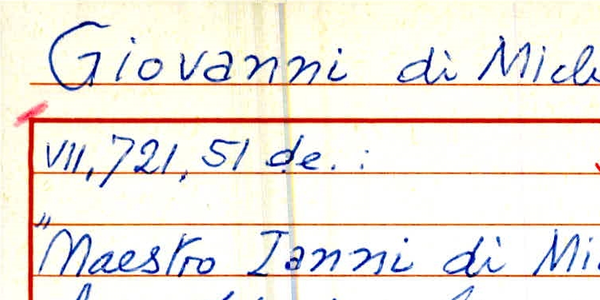 Giovanni di Mich
VII, 721, 51 de. :
"Maestro Ianni di Mi